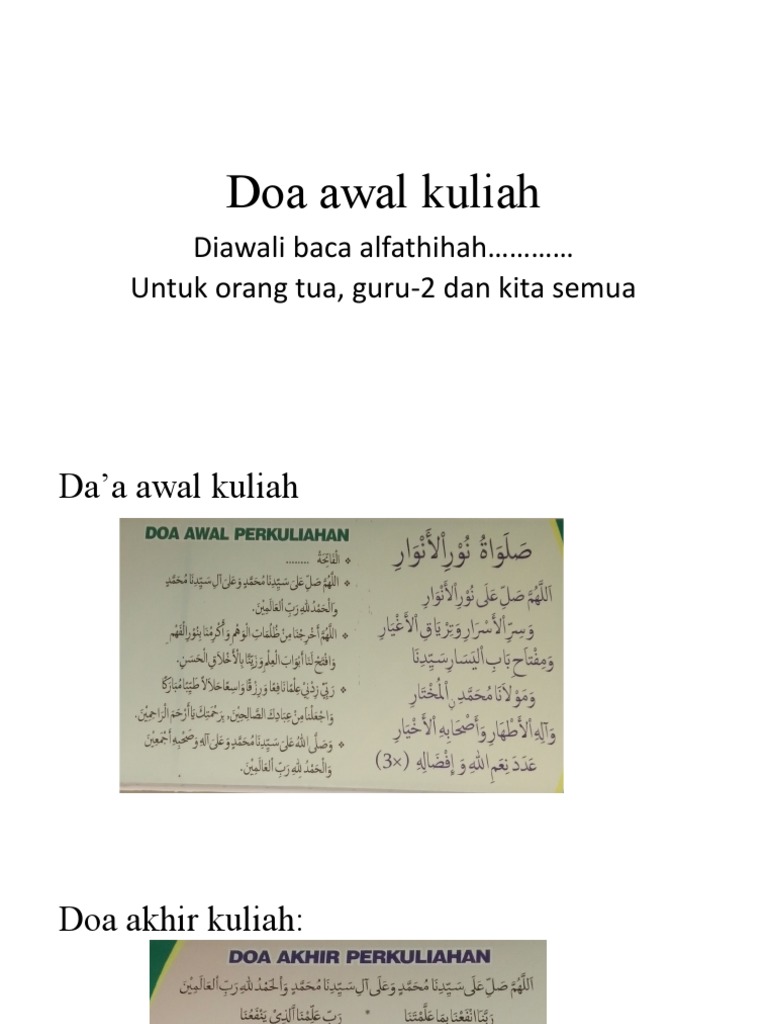 Doa awal kuliah
Diawali baca alfathihah…………
Untuk orang tua, guru-2 dan kita semua
Da’a awal kuliah
DOA AWAL PERKULIAHAN
❖ الْفَاتِحَةُ ........
❖ اللّٰهُمَّ صَلِّ عَلَى سَيِّدِنَا مُحَمَّدٍ وَعَلَى آلِ سَيِّدِنَا مُحَمَّدٍ
وَالْحَمْدُ لِلّٰهِ رَبِّ الْعَالَمِيْنَ.
❖ اللّٰهُمَّ أَخْرِجْنَا مِنْ ظُلُمَاتِ الْوَهْمِ وَأَكْرِمْنَا بِنُوْرِ الْفَهْمِ
وَافْتَحْ لَنَا أَبْوَابَ الْعِلْمِ وَزَيِّنَّا بِالْأَخْلَاقِ الْحَسَنِ.
❖ رَبِّيْ زِدْنِيْ عِلْمًا نَافِعًا وَرِزْقًا وَاسِعًا حَلَالاً طَيِّبًا مُبَارَكًا
وَاجْعَلْنَا مِنْ عِبَادِكَ الصَّالِحِيْنَ, بِرَحْمَتِكَ يَا أَرْحَمَ الرَّاحِمِيْنَ.
❖ وَصَلَّى اللهُ عَلَى سَيِّدِنَا مُحَمَّدٍ وَعَلَى آلِهِ وَصَحْبِهِ أَجْمَعِيْنَ
وَالْحَمْدُ لِلّٰهِ رَبِّ الْعَالَمِيْنَ.
صَلَوَاةُ نُوْرِ الْأَنْوَارِ
اَللّٰهُمَّ صَلِّ عَلَى نُوْرِ الْأَنْوَارِ
وَسِرِّ الْأَسْرَارِ وَتِرْيَاقِ الْأَغْيَارِ
وَمِفْتَاحِ بَابِ الْيَسَارِ سَيِّدِنَا
وَمَوْلَانَا مُحَمَّدِ نِ الْمُخْتَارِ
وَآلِهِ الْأَطْهَارِ وَأَصْحَابِهِ الْأَخْيَارِ
عَدَدَ نِعَمِ اللهِ وَإِفْضَالِهِ (3×)
Doa akhir kuliah:
DOA AKHIR PERKULIAHAN
اَللّٰهُمَّ صَلِّ عَلَى سَيِّدِنَا مُحَمَّدٍ وَعَلَى آلِ سَيِّدِنَا مُحَمَّدٍ وَالْحَمْدُ لِلّٰهِ رَبِّ الْعَالَمِيْنَ
رَبَّنَا انْفَعْنَا بِمَا عَلَّمْتَنَا * رَبِّ عَلِّمْنَا الَّذِيْ يَنْفَعُنَا